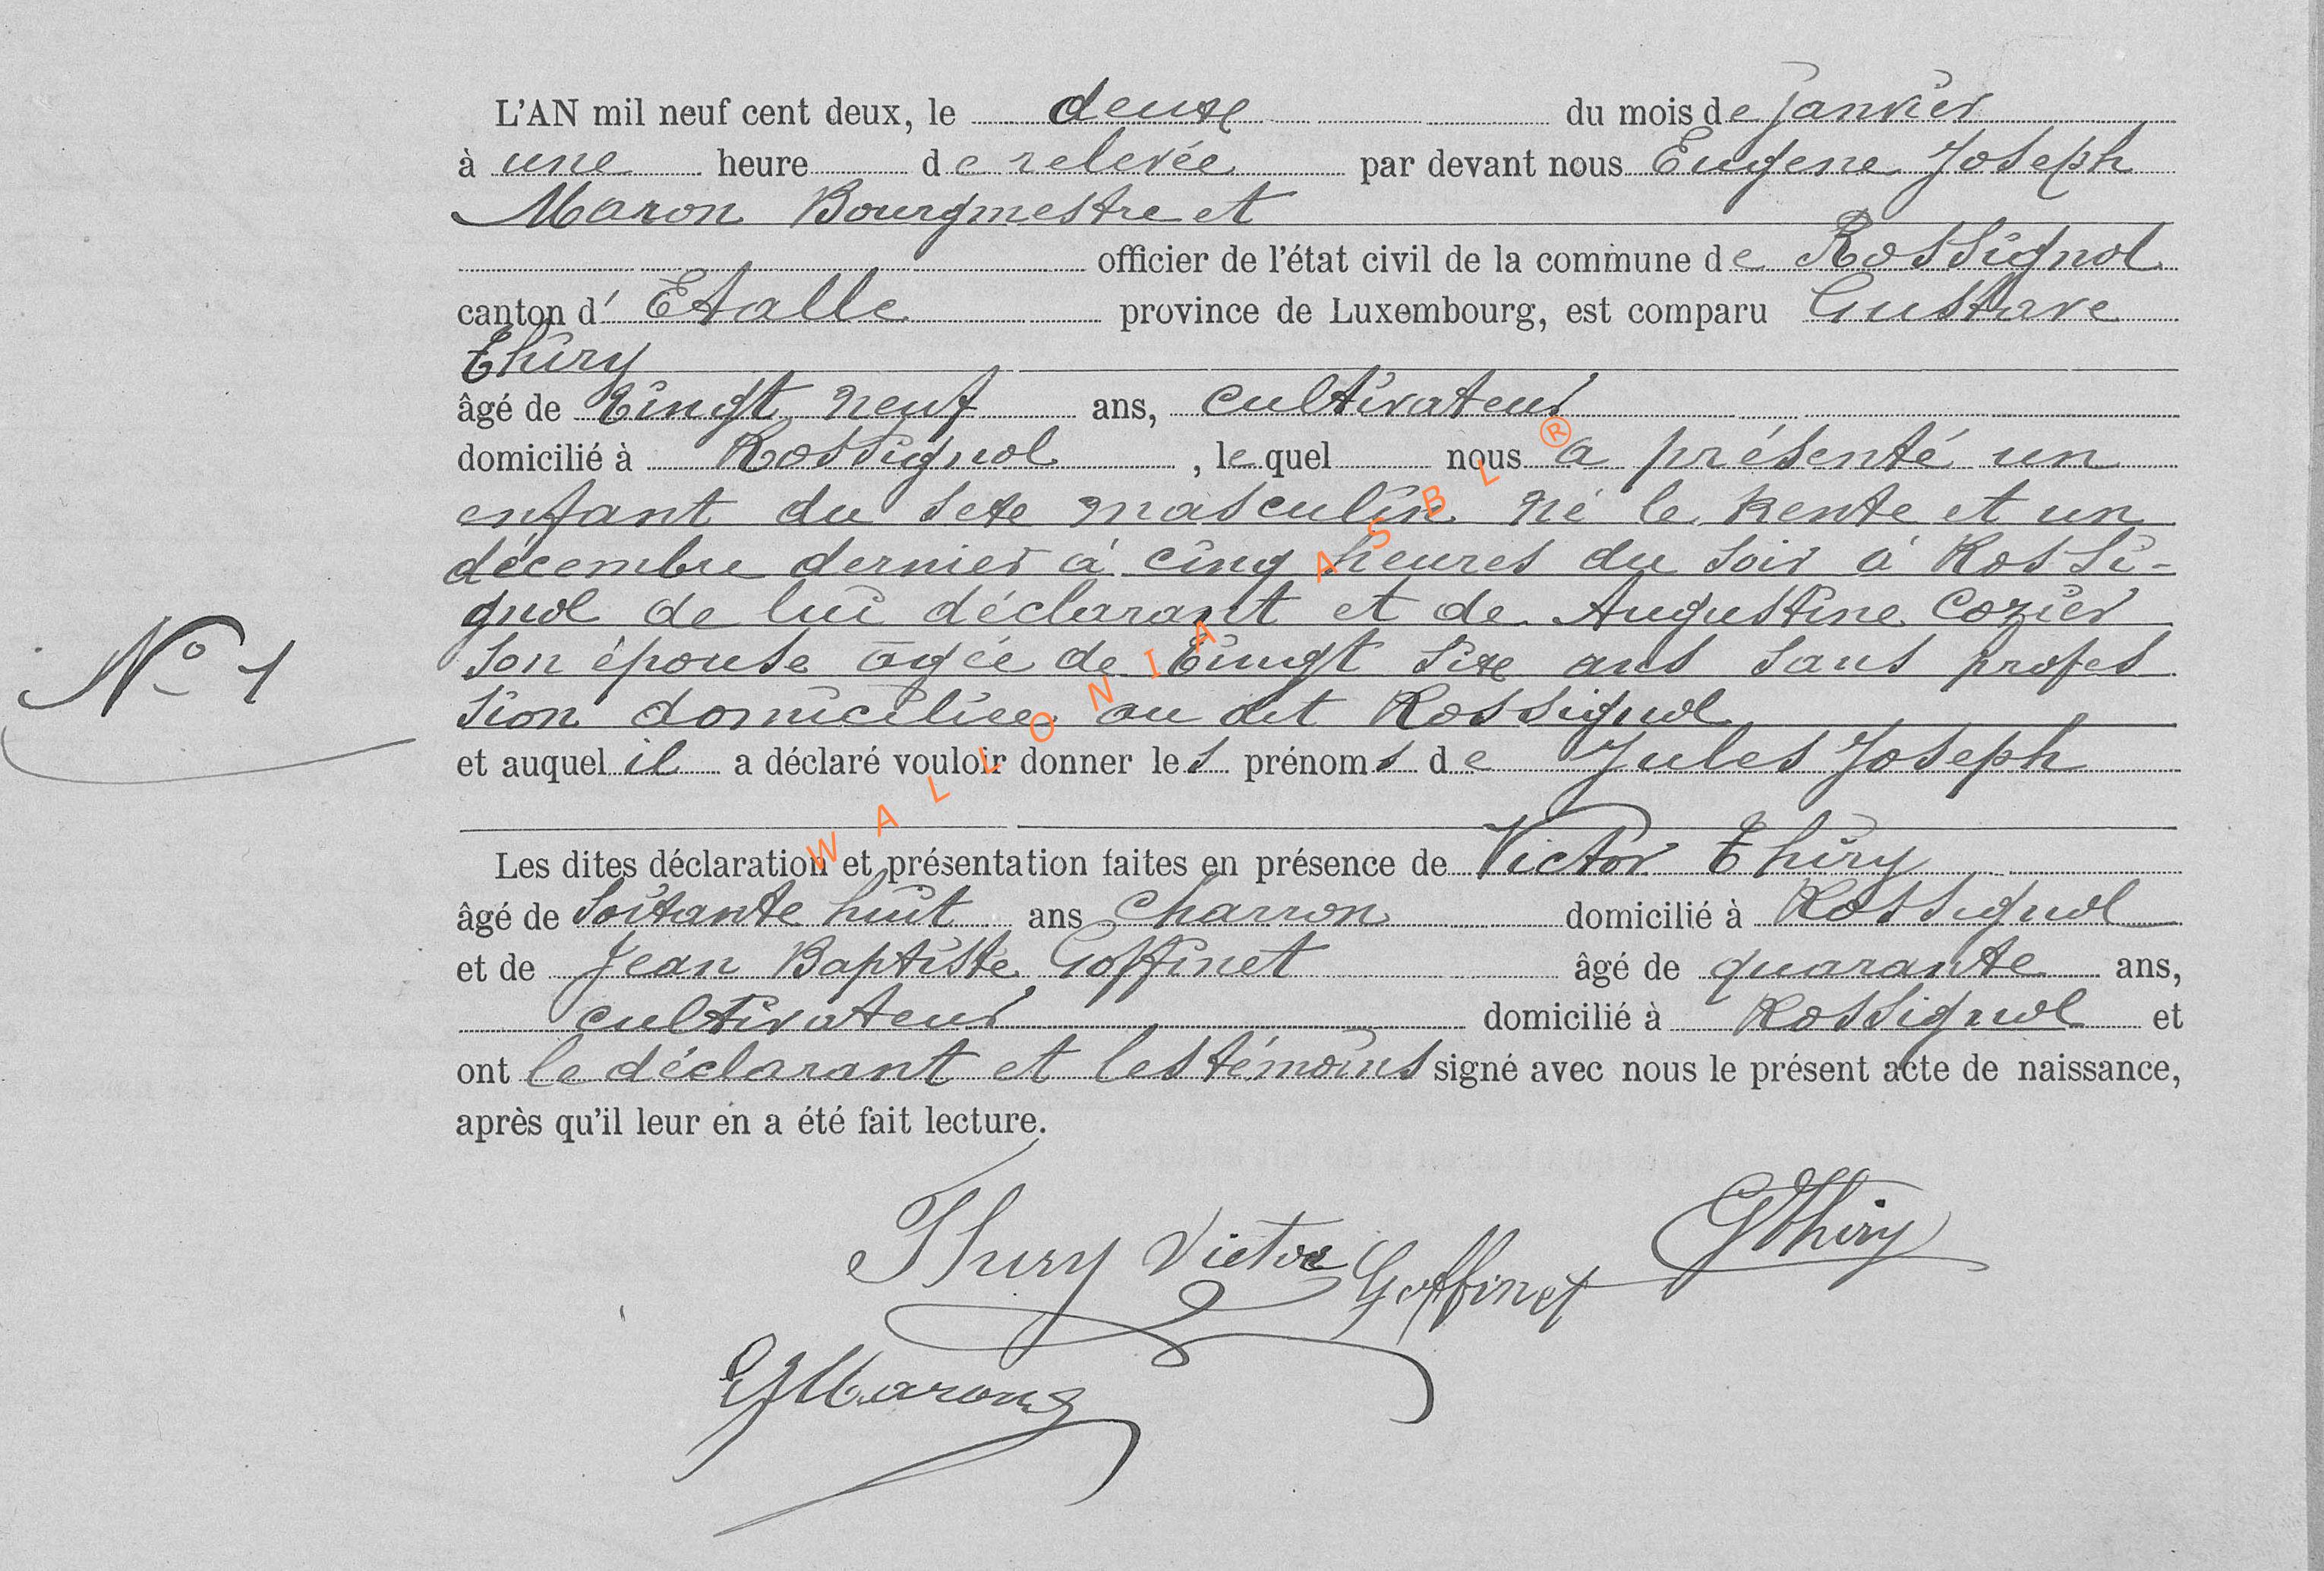 L'AN mil neuf cent deux, le deux du mois de janvier
à une heure de relevée par devant nous Eugene Joseph
Maron Bourgmestre et
officier de l'état civil de la commune de Rossignol
canton d' Etalle province de Luxembourg, est comparu Gustave
Thiry
âgé de vingt neuf ans, cultivateur
domicilié à Rossignol, lequel nous a présenté un
enfant du sexe masculin né le trente et un
décembre dernier à cinq heures du soir à Rossi-
gnol de lui déclarant et de Augustine Cozier
N° 1
son épouse âgée de vingt six ans sans profes
sion domiciliée au dit Rossignol
et auquel il a déclaré vouloir donner les prénoms de Jules Joseph
Les dites déclaration et présentation faites en présence de Victor Thiry
âgé de soixante huit ans charron domicilié à Rossignol
et de Jean Baptiste Goffinet âgé de quarante ans,
cultivateur domicilié à Rossignol et
ont le déclarant et les témoins signé avec nous le présent acte de naissance,
après qu'il leur en a été fait lecture.
Thiry Victor Goffinet GThiry
EJMaron
WALLONIA ASBL ®